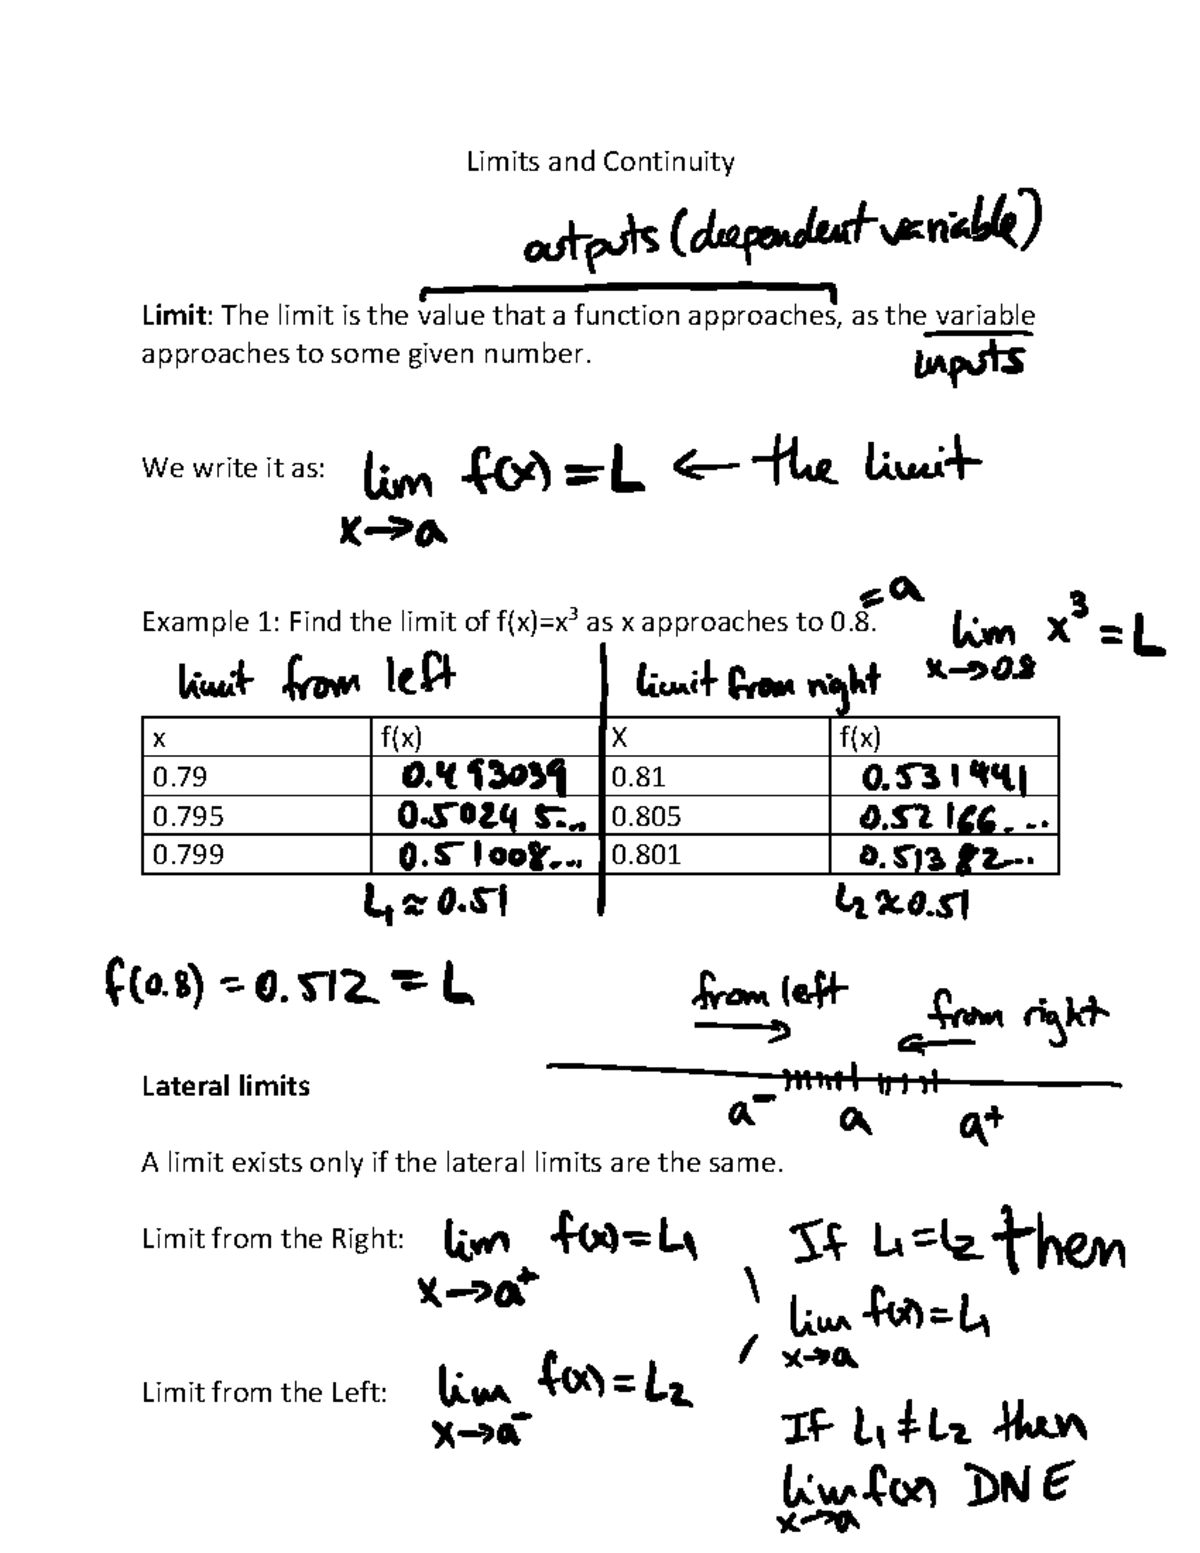 Limits and Continuity
outputs (deependent variable)
Limit: The limit is the value that a function approaches, as the variable
approaches to some given number.
inputs
We write it as: lim f(x) = L ← the limit
x→a
= a
Example 1: Find the limit of f(x)=x³ as x approaches to 0.8. lim x³ = L
x→0.8
limit from left limit from right
x f(x) X f(x)
0.79 0.493039 0.81 0.531441
0.795 0.50245... 0.805 0.52166...
0.799 0.51008... 0.801 0.51382...
L₁ ≈ 0.51 L₂ ≈ 0.51
f(0.8) = 0.512 = L
from left from right
Lateral limits
a⁻ a a⁺
A limit exists only if the lateral limits are the same.
Limit from the Right: lim f(x) = L₁ If L₁ = L₂ then
x→a⁺
lim f(x) = L₁
x→a
Limit from the Left: lim f(x) = L₂
x→a⁻
If L₁ ≠ L₂ then
lim f(x) DNE
x→a